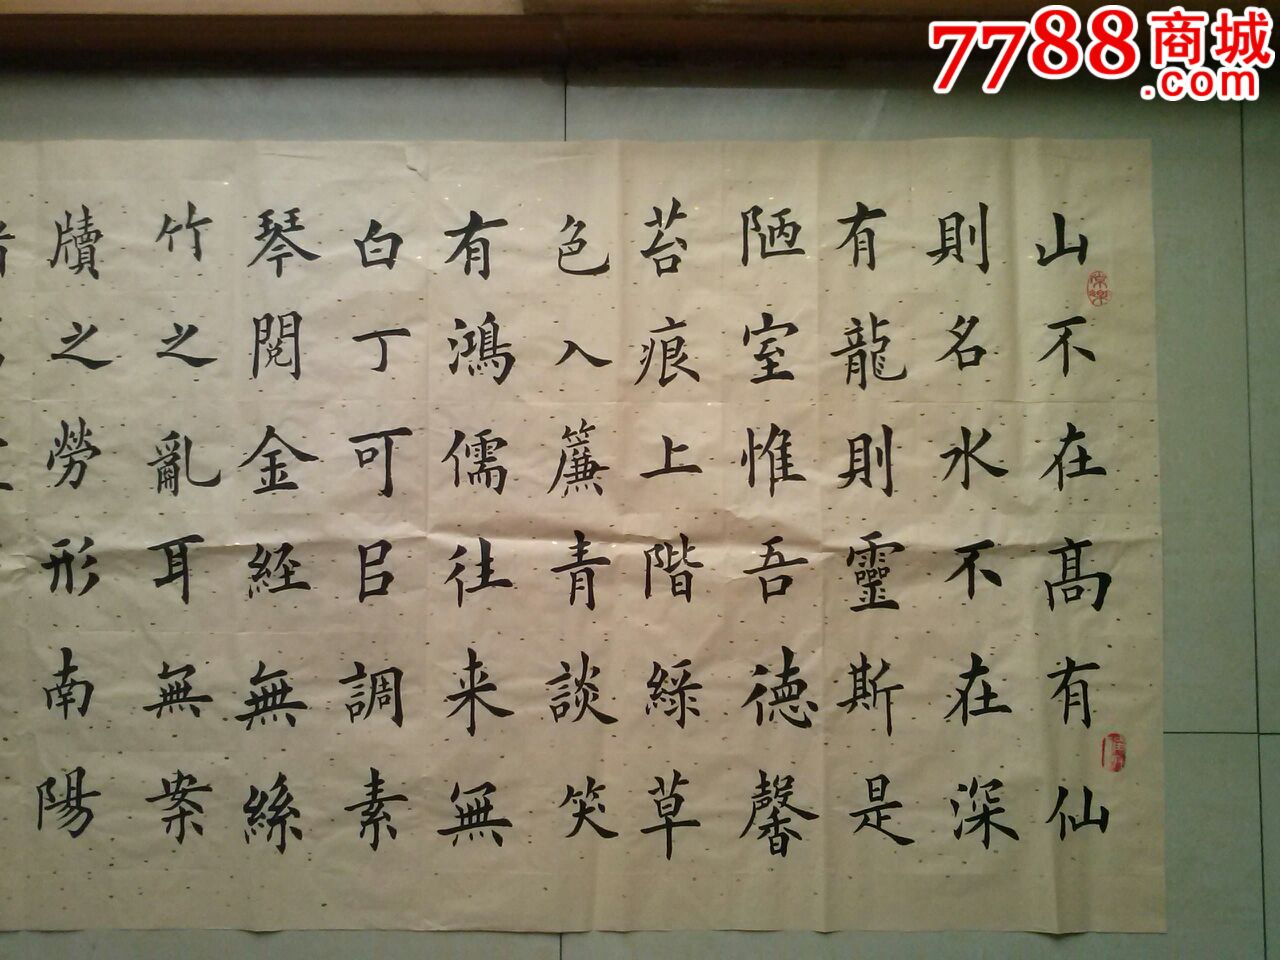 山不在高有仙
則名水不在深
有龍則靈斯是
陋室惟吾德馨
苔痕上階綠草
色入簾青談笑
有鴻儒往来無
白丁可㠯調素
琴閱金経無絲
竹之亂耳無案
牘之勞形南陽
7788商城
.com